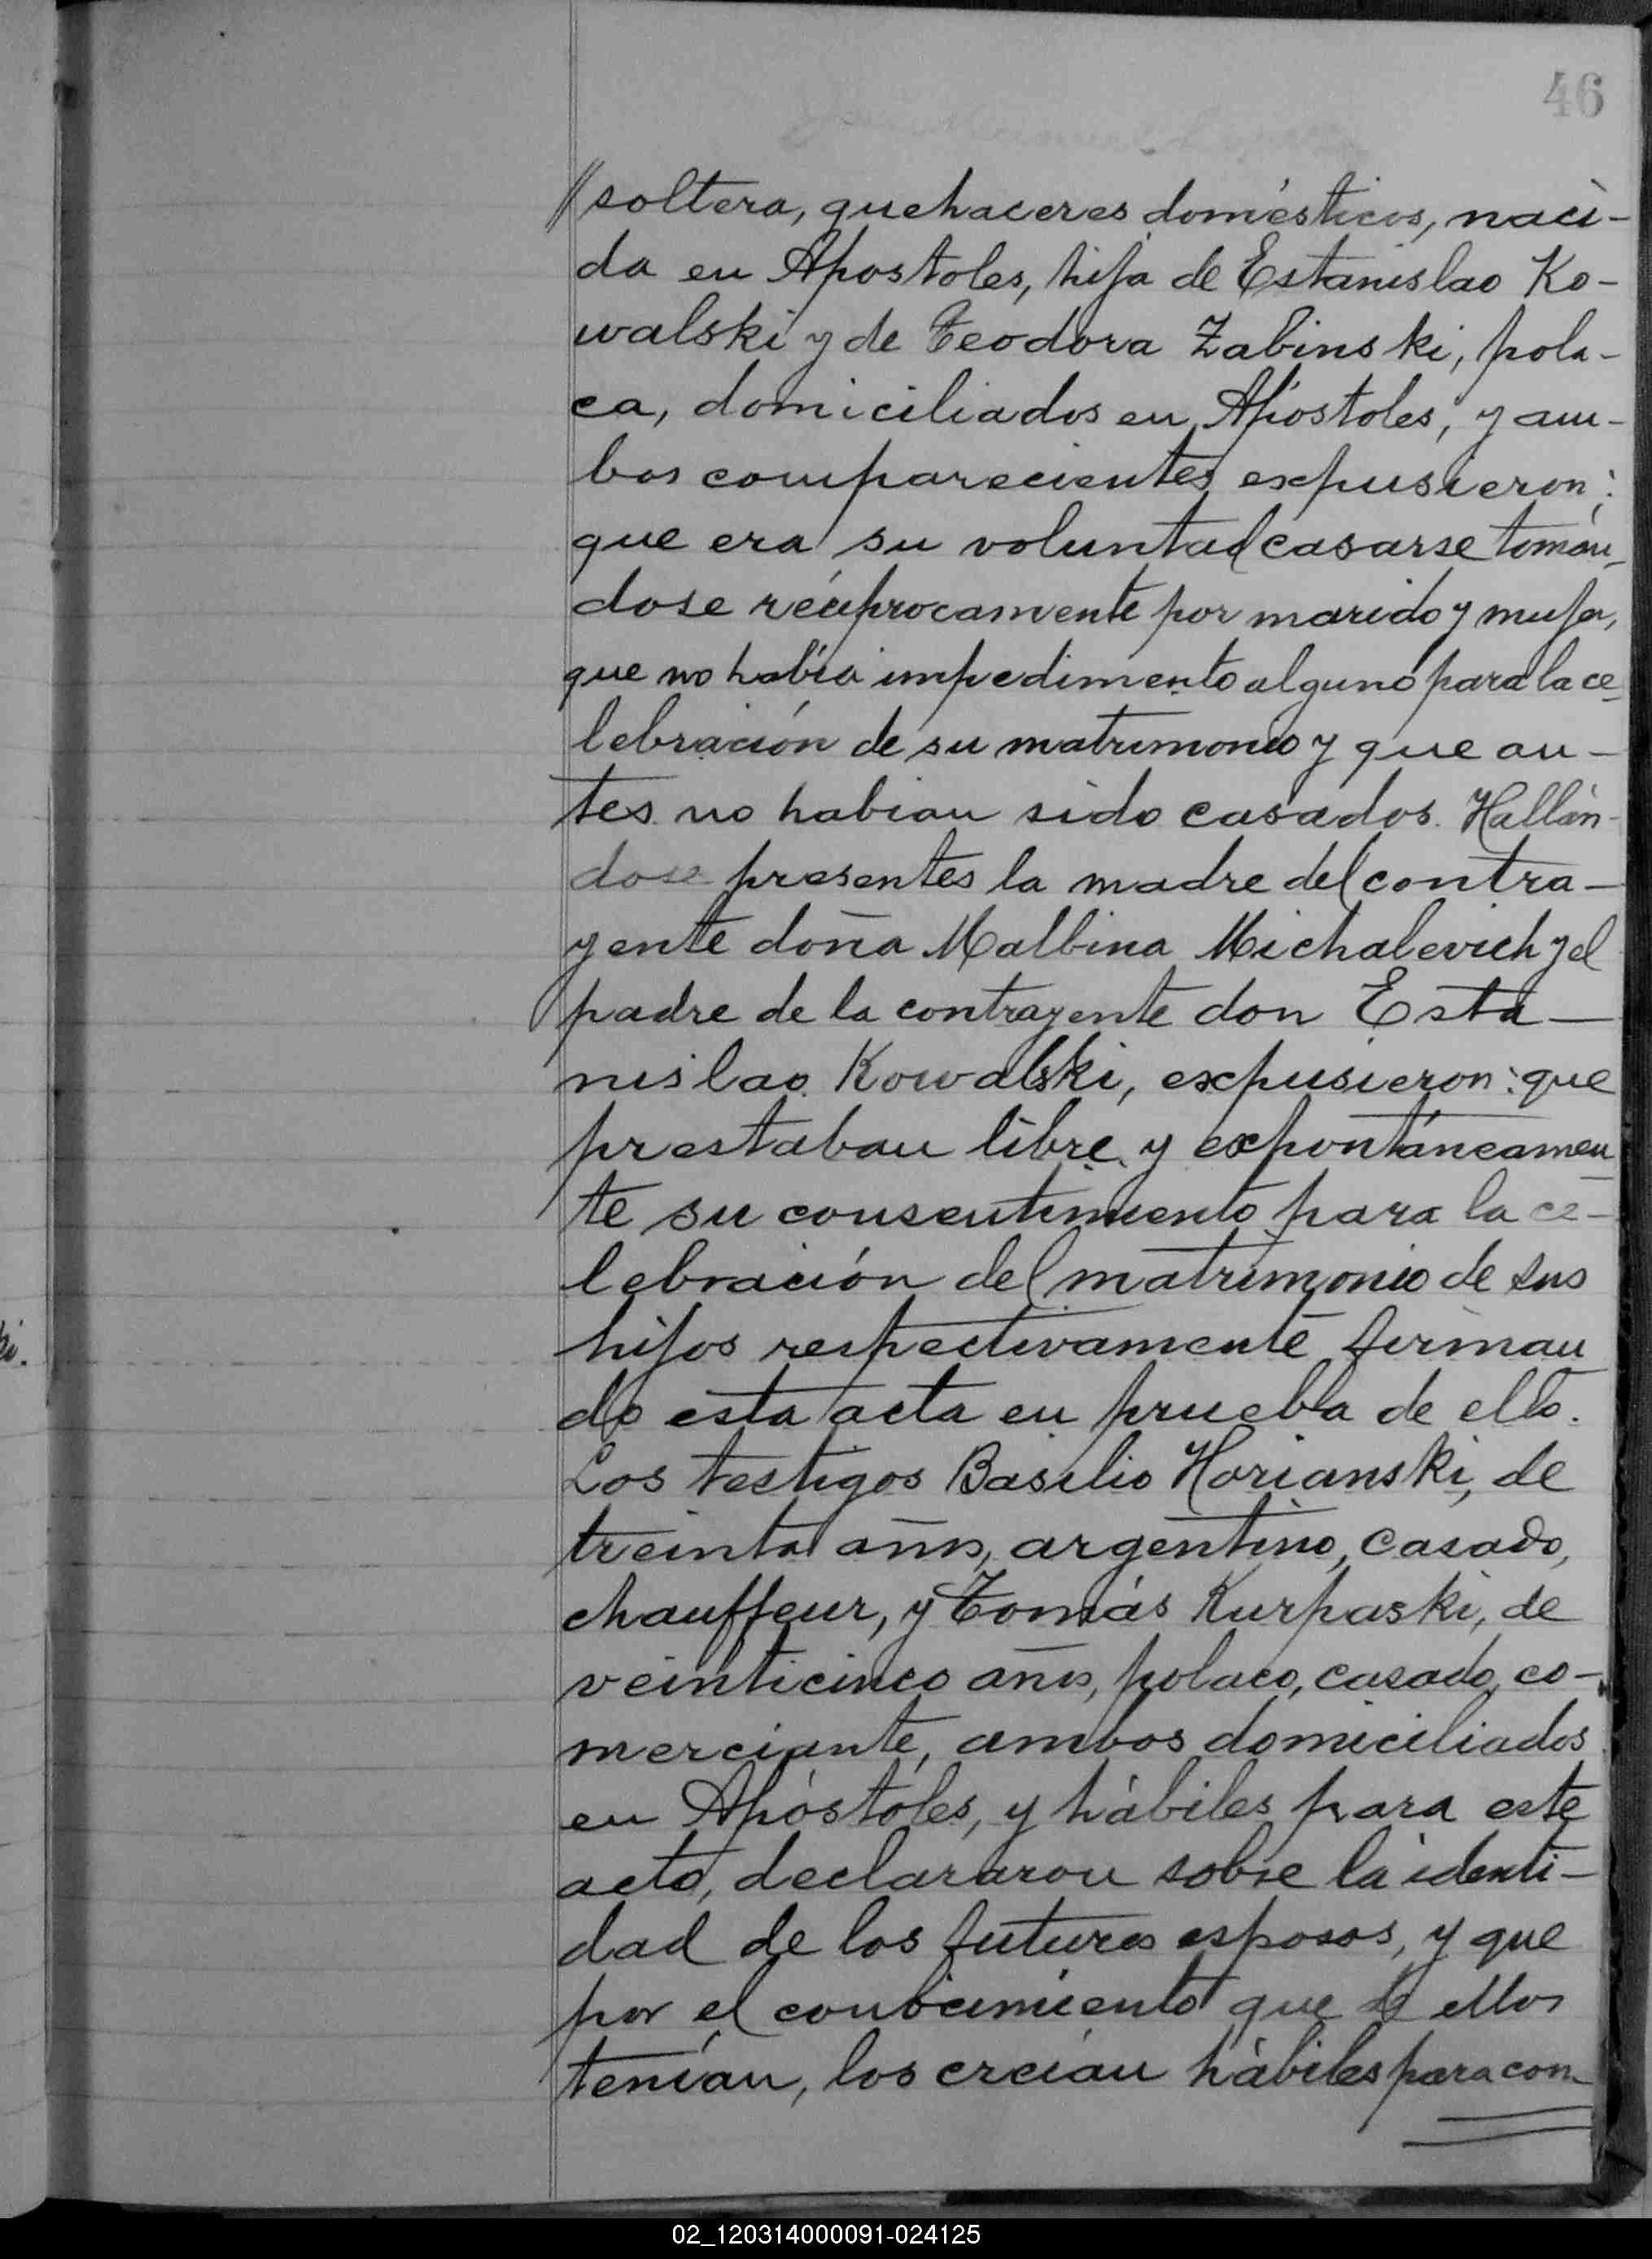 46
//soltera, quehaceres domésticos, naci-
da en Apostoles, hija de Estanislao Ko-
walski y de Teodora Zabinski, pola-
ca, domiciliados en Apóstoles, y am-
bos comparecientes expusieron:
que era su voluntad casarse tomán-
dose recíprocamente por marido y mujer,
que no había impedimento alguno para la ce-
lebración de su matrimonio y que an-
tes no habian sido casados. Hallán-
dose presentes la madre del contra-
yente doña Malbina Michalevich y el
padre de la contrayente don Esta-
nislao Kowalski, expusieron: que
prestaban libre y expontáneamen
te su consentimiento para la ce-
lebración del matrimonio de sus
hijos respectivamente firman
do esta acta en prueba de ello.
Los testigos Basilio Horianski, de
treinta años, argentino, casado,
chauffeur, y Tomás Kurpaski, de
veinticinco años, polaco, casado, co-
merciante, ambos domiciliados
en Apóstoles, y hábiles para este
acto, declararon sobre la identi-
dad de los futuros esposos, y que
por el conocimiento que de ellos
tenían, los creían hábiles para con-
ki.
02_120314000091-024125